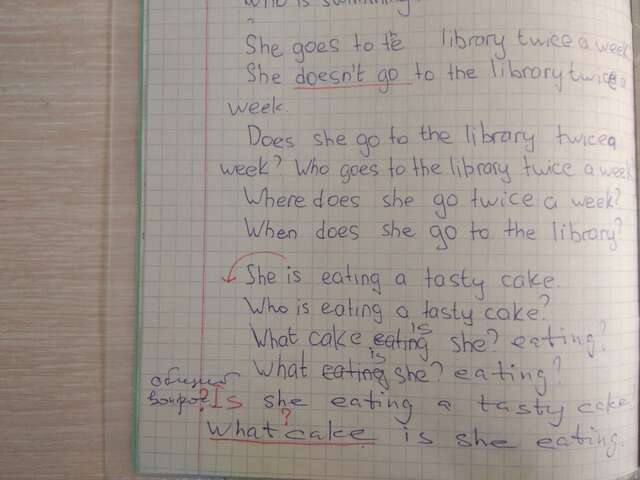 Who is swimming?
She goes to te library twice a week
She doesn't go to the library twice a
week.
Does she go to the library twice a
week? Who goes to the library twice a week
Where does she go twice a week?
When does she go to the library?
She is eating a tasty cake.
Who is eating a tasty cake?
What cake eating is she? eating?
What eating is she? eating?
общий
вопрос ? Is she eating a tasty cake
What cake ? is she eating.